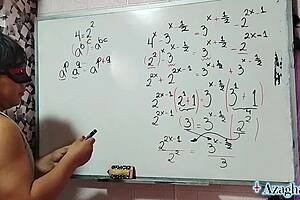 4=2²
(a^b)^c = a^bc
a^p a^q = a^p+q
4^x - 3^(x-1/2) = 3^(x+1/2) - 2^(2x-1)
(2²)^x - 3^(x-1/2) = 3^(x+1/2) - 2^(2x-1)
2^2x + 2^(2x-1) = 3^(x+1/2) + 3^(x-1/2)
2^(2x-1) (2^1+1) = 3^(x-1/2) (3^1+1)
2^(2x-1) (3) = 3^(x-1/2) (2²)
4
2^(2x-1)/2² = 3^(x-1/2)/3
Azagha